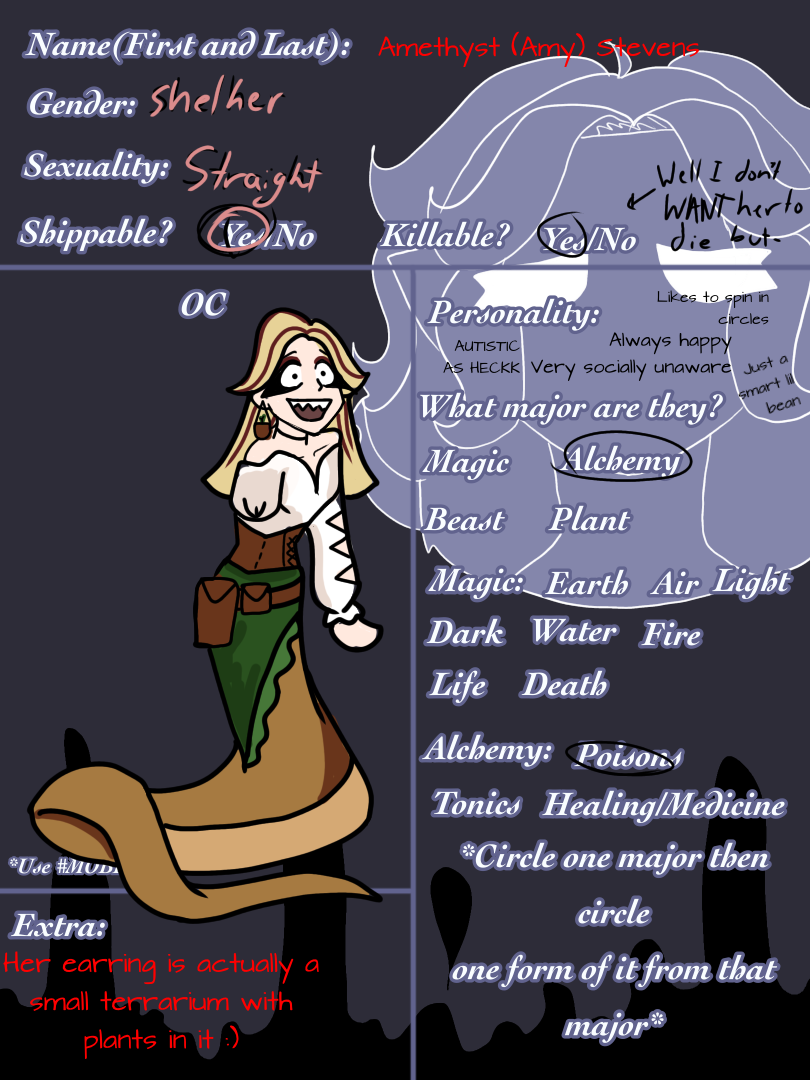 Name(First and Last): Amethyst (Amy) Stevens
Gender: she/her
Sexuality: Straight
Shippable? Yes/No
Killable? Yes/No
Well I don't
WANT her to
die but-
OC
Personality:
Likes to spin in
circles
AUTISTIC
AS HECKK
Always happy
Very socially unaware
Just a
smart lil
bean
What major are they?
Magic Alchemy
Beast Plant
Magic: Earth Air Light
Dark Water Fire
Life Death
Alchemy: Poisons
Tonics Healing/Medicine
*Circle one major then
circle
one form of it from that
major*
*Use
Extra:
Her earring is actually a
small terrarium with
plants in it :)